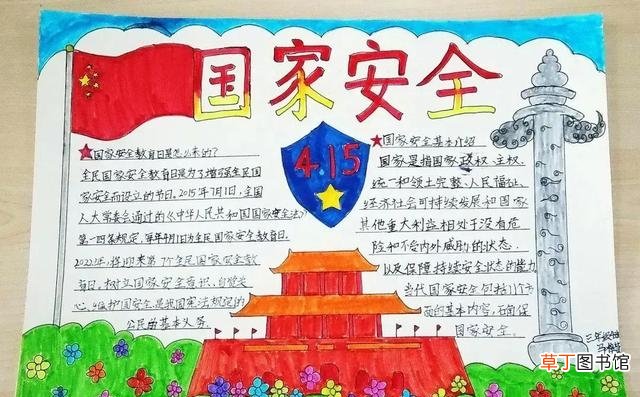 国家安全
4.15
★国家安全教育日是怎么来的?
全民国家安全教育日是为了增强全民国
家安全而设立的节日。2015年7月1日,全国
人大常委会通过的《中华人民共和国国家安全法》
第一四条规定,每年4月1日为全民国家安全教育日。
2022年,将迎来第7个全民国家安全教
育日,树立国家安全意识、自觉关
心、维护国家安全是我国宪法规定的
公民的基本义务。
★国家安全基本介绍
国家是指国家政权、主权、
统一和领土完整、人民福祉、
经济社会可持续发展和国家
其他重大利益相处于没有危
险和不受内外威胁的状态,
以及保障持续安全状态的能力
当代国家安全包括11个方
面的基本内容,石角保
国家安全。
三年级
草丁图书馆